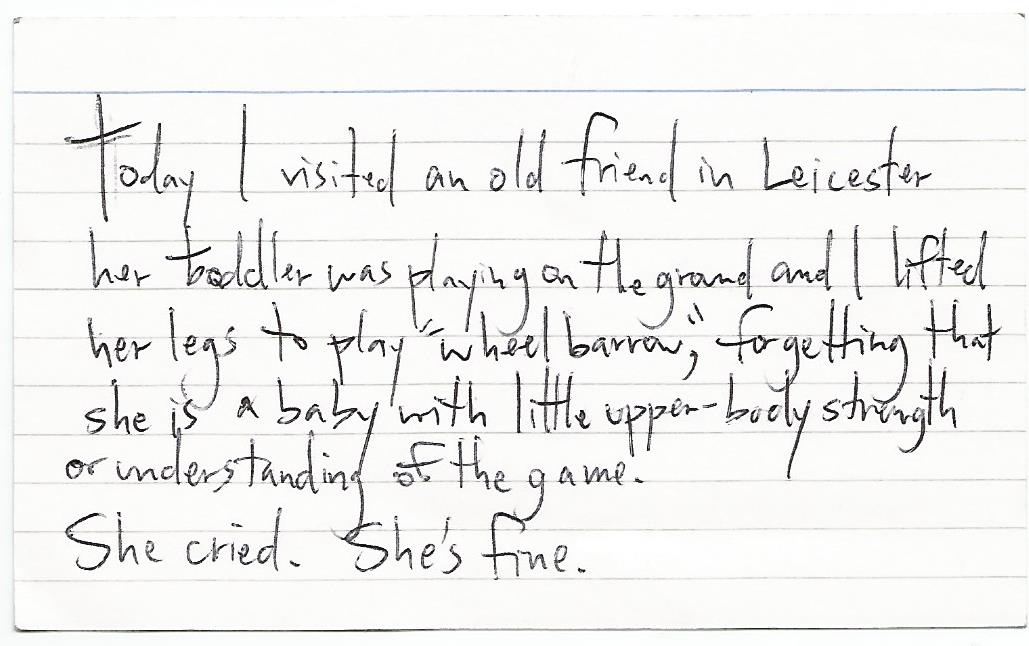 Today I visited an old friend in Leicester
her toddler was playing on the ground and I lifted
her legs to play "wheel barrow," forgetting that
she is a baby with little upper-body strength
or understanding of the game.
She cried. She's fine.